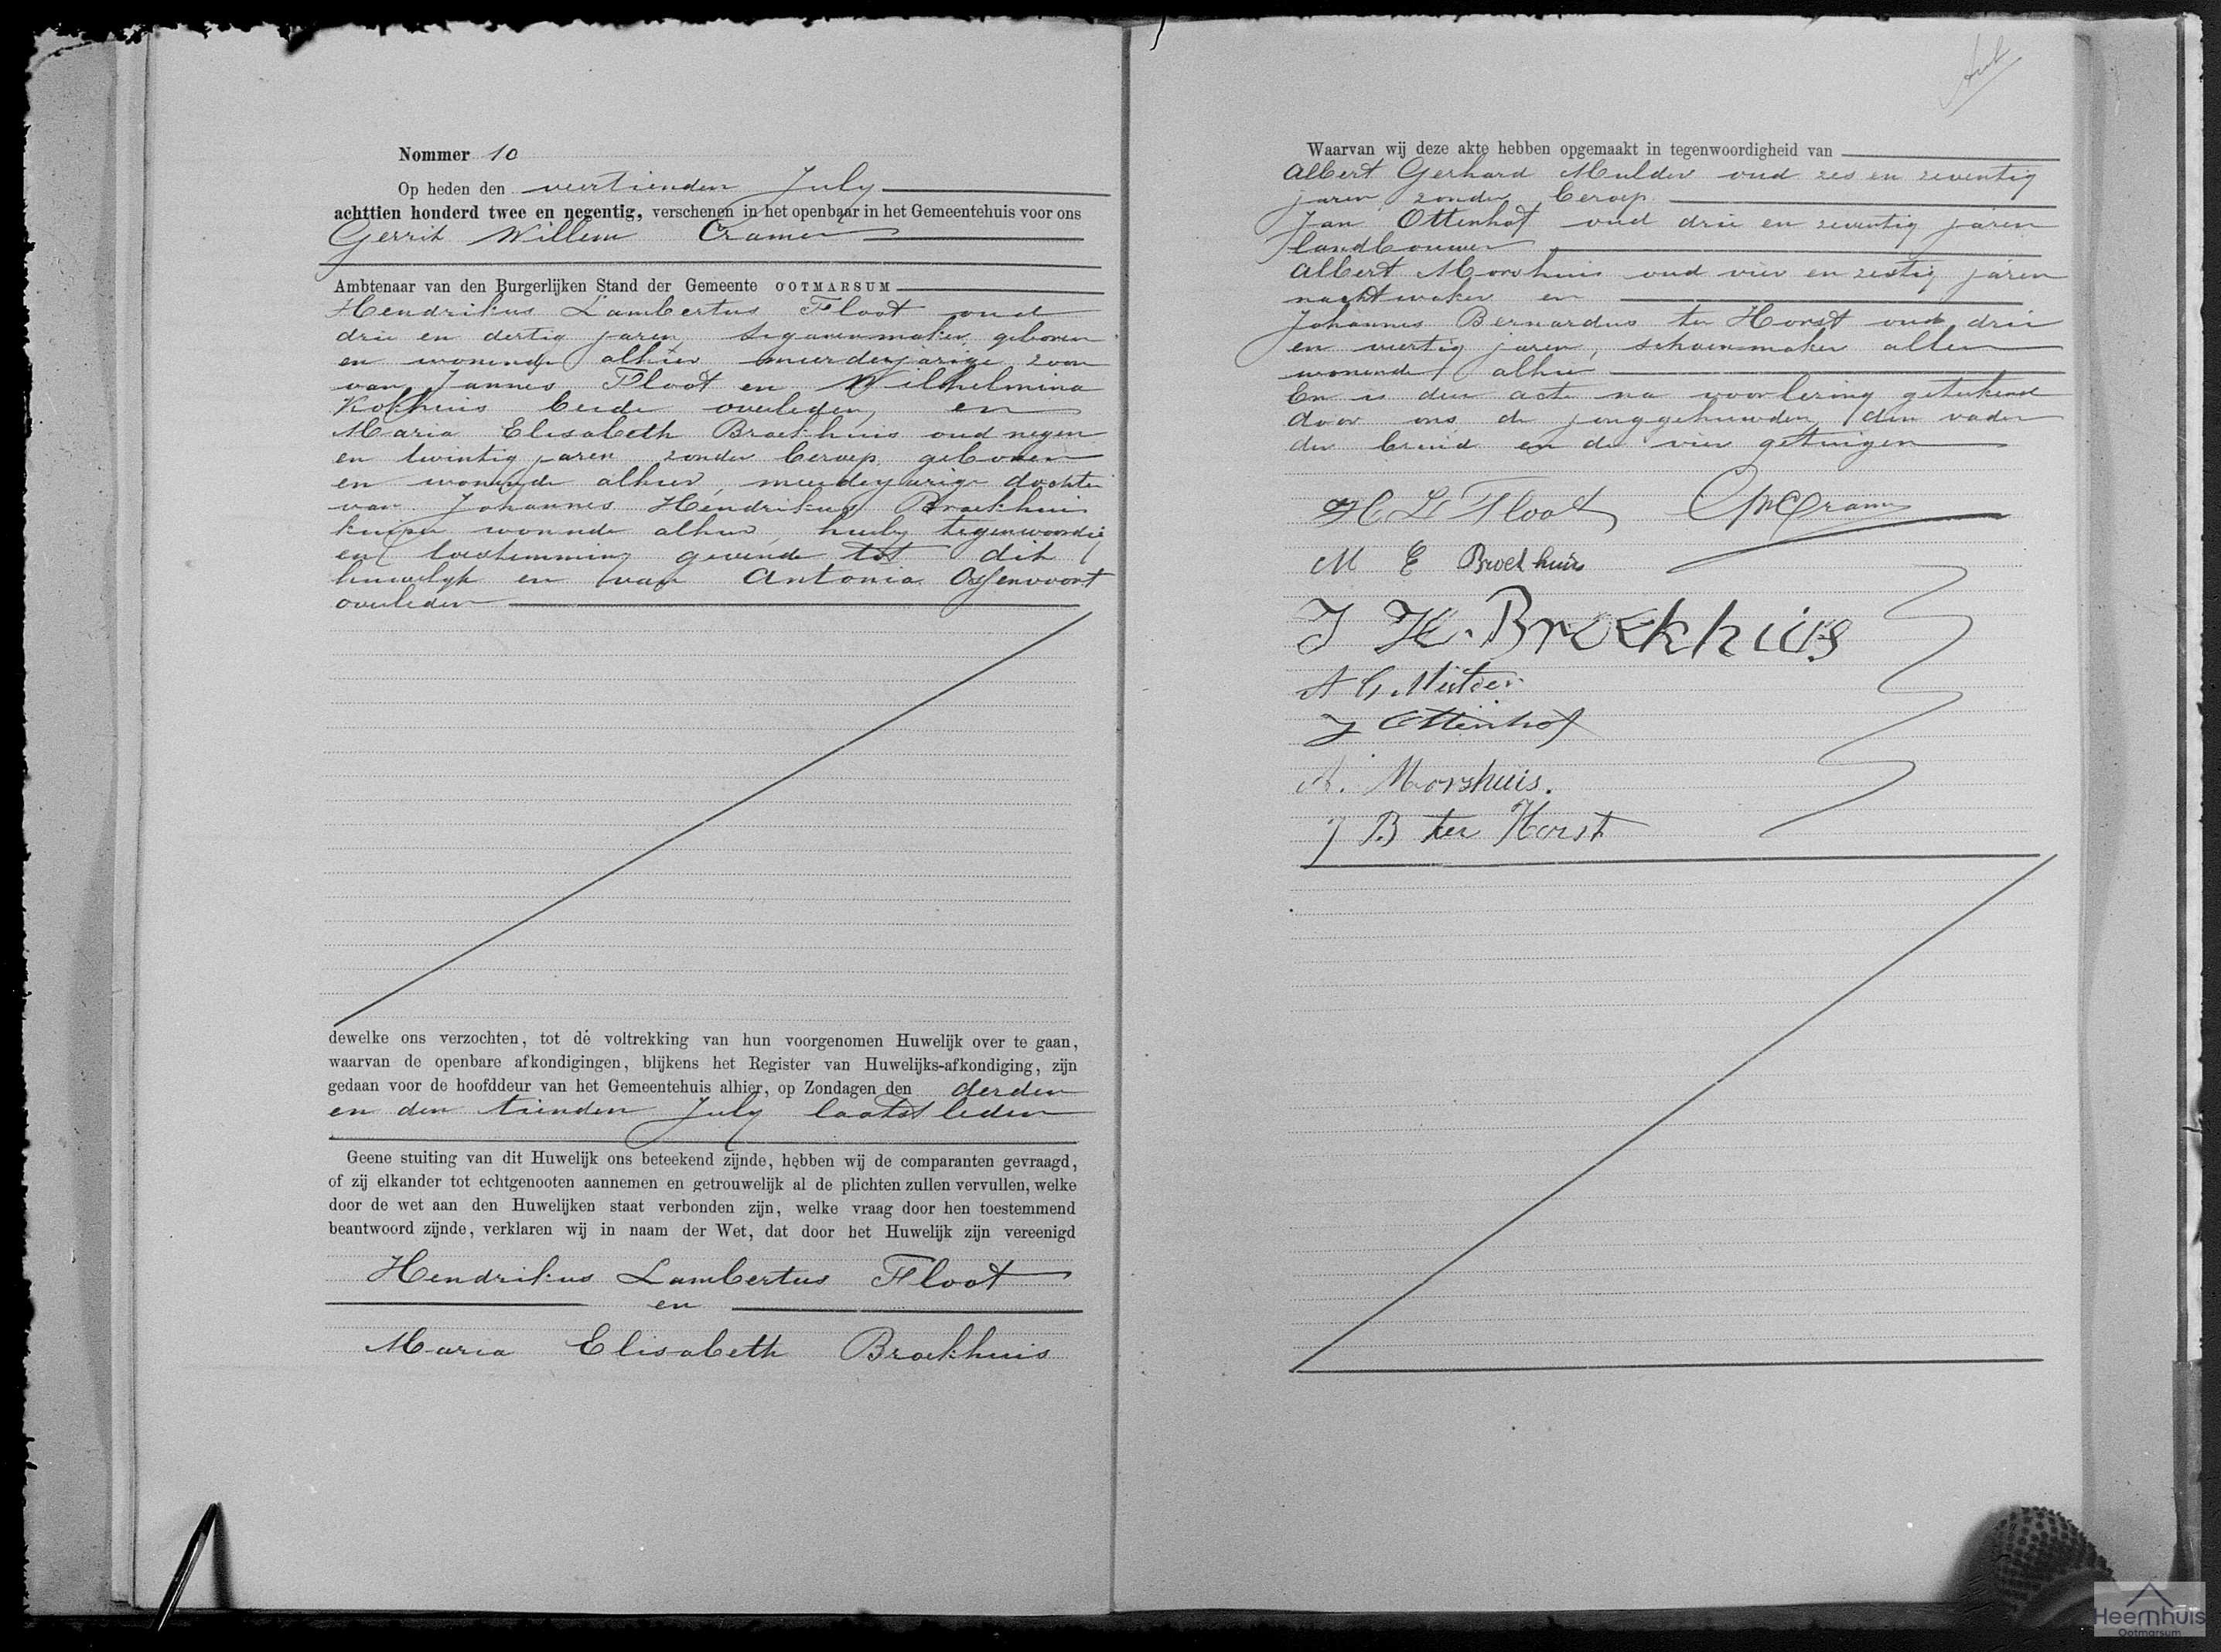 Nommer 10
Op heden den veertienden July
achttien honderd twee en negentig, verschenen in het openbaar in het Gemeentehuis voor ons
Gerrit Willem Cramer
Ambtenaar van den Burgerlijken Stand der Gemeente OOTMARSUM
Hendrikus Lambertus Floot oud
drie en dertig jaren, sigarenmaker, geboren
en wonende alhier meerderjarige zoon
van Jannes Floot en Wilhelmina
Kokhuis beide overleden, en
Maria Elisabeth Broekhuis oud negen
en twintig jaren zonder beroep, geboren
en wonende alhier, meerderjarige dochter
van Johannes Hendrikus Broekhuis
kuiper wonende alhier, hierby tegenwoordig
en toestemming gevende tot dit
huwelyk en van Antonia Ossenvoort
overleden
dewelke ons verzochten, tot de voltrekking van hun voorgenomen Huwelijk over te gaan,
waarvan de openbare afkondigingen, blijkens het Register van Huwelijks-afkondiging, zijn
gedaan voor de hoofddeur van het Gemeentehuis alhier, op Zondagen den derden
en den tienden July laatstleden
Geene stuiting van dit Huwelijk ons beteekend zijnde, hebben wij de comparanten gevraagd,
of zij elkander tot echtgenooten aannemen en getrouwelijk al de plichten zullen vervullen, welke
door de wet aan den Huwelijken staat verbonden zijn, welke vraag door hen toestemmend
beantwoord zijnde, verklaren wij in naam der Wet, dat door het Huwelijk zijn vereenigd
Hendrikus Lambertus Floot
en
Maria Elisabeth Broekhuis
Waarvan wij deze akte hebben opgemaakt in tegenwoordigheid van
Albert Gerhard Mulder oud zes en zeventig
jaren zonder beroep
Jan Ottenhof oud drie en zeventig jaren
landbouwer
Albert Morshuis oud vier en zestig jaren
nachtwaker en
Johannes Bernardus ter Horst oud drie
en veertig jaren, schoenmaker allen
wonende alhier
En is deze acte na voorlezing geteekend
door ons, de jonggehuwden, den vader
der bruid en de vier getuigen
H L Floot GWCramer
M E Broekhuis
J H. Broekhuis
A G. Mulder
J Ottenhof
A. Morshuis.
J B ter Horst
Heemhuis
Ootmarsum